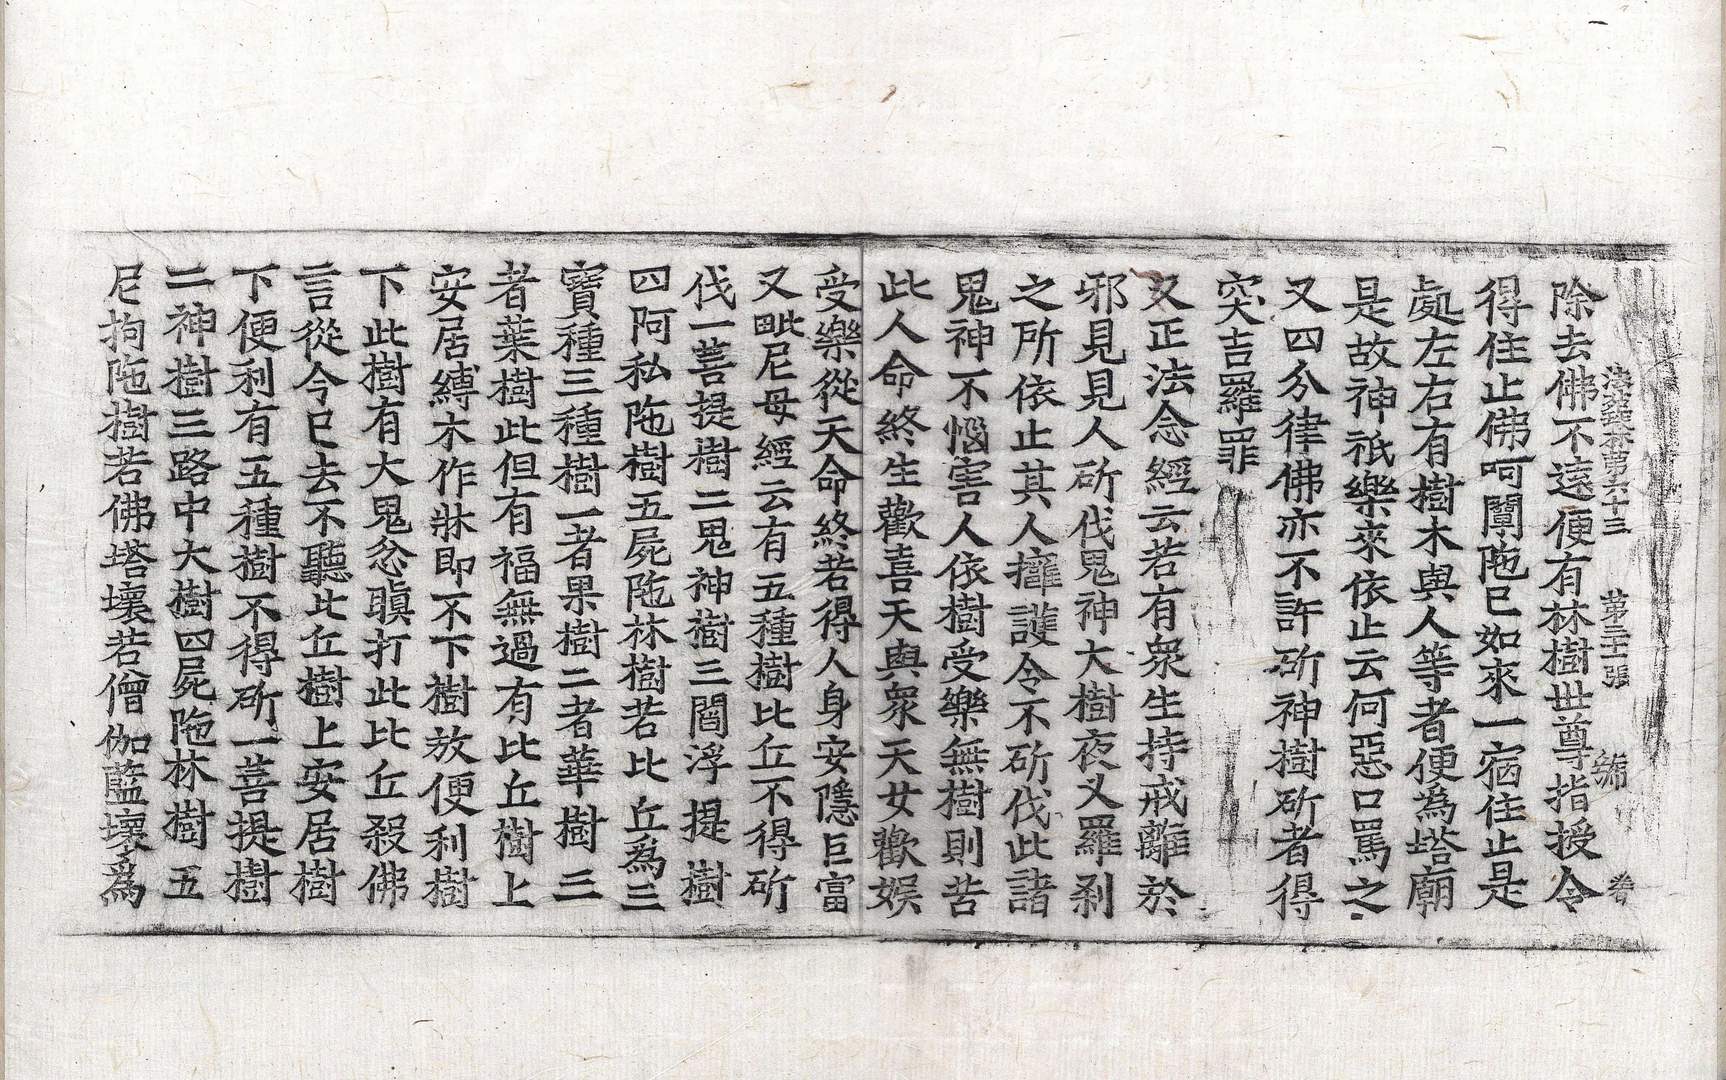 法苑珠林第六十三 第三十張 號
除去佛不遠便有林樹世尊指授令
得住止佛呵闡陁已如來一宿住止是
處左右有樹木與人等者便為塔廟
是故神祇樂來依止云何惡口罵之
又四分律佛亦不許斫神樹斫者得
突吉羅罪
又正法念經云若有衆生持戒離於
邪見見人斫伐鬼神大樹夜叉羅刹
之所依止其人擁護令不斫伐此諸
鬼神不惱害人依樹受樂無樹則苦
此人命終生歡喜天與衆天女歡娛
受樂從天命終若得人身安隱巨富
又毗尼母經云有五種樹比丘不得斫
伐一菩提樹二鬼神樹三閻浮提樹
四阿私陁樹五屍陁林樹若比丘為三
寶種三種樹一者果樹二者華樹三
者葉樹此但有福無過有比丘樹上
安居縛木作牀即不下樹放便利樹
下此樹有大鬼忿瞋打此比丘殺佛
言從今已去不聽比丘樹上安居樹
下便利有五種樹不得斫一菩提樹
二神樹三路中大樹四屍陁林樹五
尼拘陁樹若佛塔壞若僧伽藍壞為